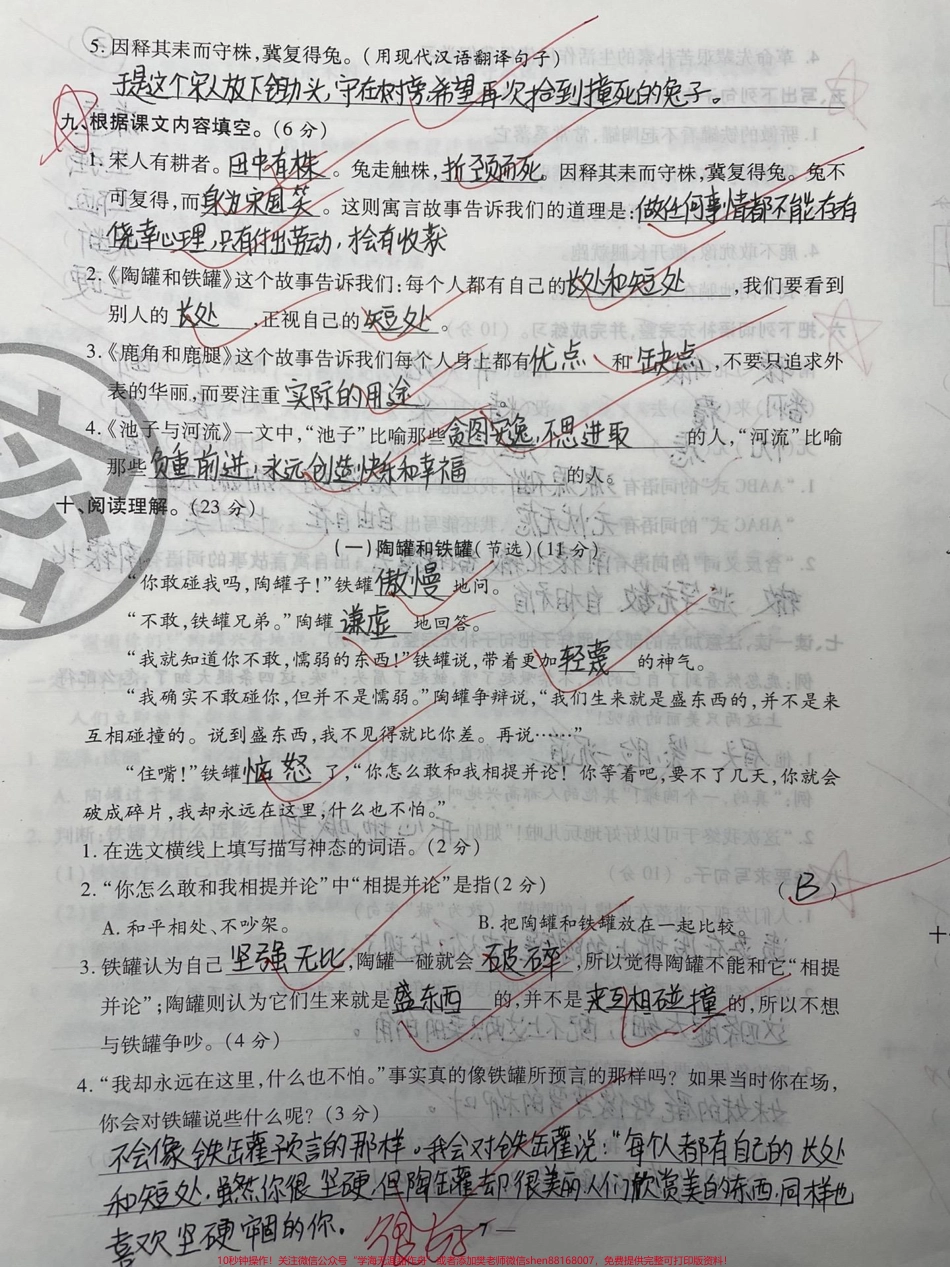 5. 因释其耒而守株,冀复得兔。(用现代汉语翻译句子)
于是这个宋人放下锄头,守在树旁,希望再次拾到撞死的兔子。
九、根据课文内容填空。(6 分)
1. 宋人有耕者。田中有株。兔走触株,折颈而死。因释其耒而守株,冀复得兔。兔不
可复得,而身为宋国笑。这则寓言故事告诉我们的道理是:做任何事情都不能存有
侥幸心理,只有付出劳动,才会有收获
2.《陶罐和铁罐》这个故事告诉我们:每个人都有自己的长处和短处,我们要看到
别人的长处,正视自己的短处。
3.《鹿角和鹿腿》这个故事告诉我们每个人身上都有优点和缺点,不要只追求外
表的华丽,而要注重实际的用途。
4.《池子与河流》一文中,“池子”比喻那些贪图安逸,不思进取的人,“河流”比喻
那些负重前进,永远创造快乐和幸福的人。
十、阅读理解。(23 分)
(一)陶罐和铁罐(节选)(11 分)
“你敢碰我吗,陶罐子!”铁罐傲慢地问。
“不敢,铁罐兄弟。”陶罐谦虚地回答。
“我就知道你不敢,懦弱的东西!”铁罐说,带着更加轻蔑的神气。
“我确实不敢碰你,但并不是懦弱。”陶罐争辩说,“我们生来就是盛东西的,并不是来
互相碰撞的。说到盛东西,我不见得就比你差。再说……”
“住嘴!”铁罐恼怒了,“你怎么敢和我相提并论! 你等着吧,要不了几天,你就会
破成碎片,我却永远在这里,什么也不怕。”
1. 在选文横线上填写描写神态的词语。(2 分)
2. “你怎么敢和我相提并论”中“相提并论”是指(2 分) (B)
A. 和平相处、不吵架。 B. 把陶罐和铁罐放在一起比较。
3. 铁罐认为自己坚强无比,陶罐一碰就会破碎,所以觉得陶罐不能和它“相提
并论”;陶罐则认为它们生来就是盛东西的,并不是来互相碰撞的,所以不想
与铁罐争吵。(4 分)
4. “我却永远在这里,什么也不怕。”事实真的像铁罐所预言的那样吗? 如果当时你在场,
你会对铁罐说些什么呢? (3 分)
不会像铁罐预言的那样。我会对铁罐说:“每个人都有自己的长处
和短处,虽然你很坚硬,但陶罐却很美丽,人们欣赏美的东西,同样也
喜欢坚硬牢固的你。
10秒钟操作! 关注微信公众号“学海无涯超作舟” 或者添加樊老师微信shen88168007,免费提供完整可打印版资料!